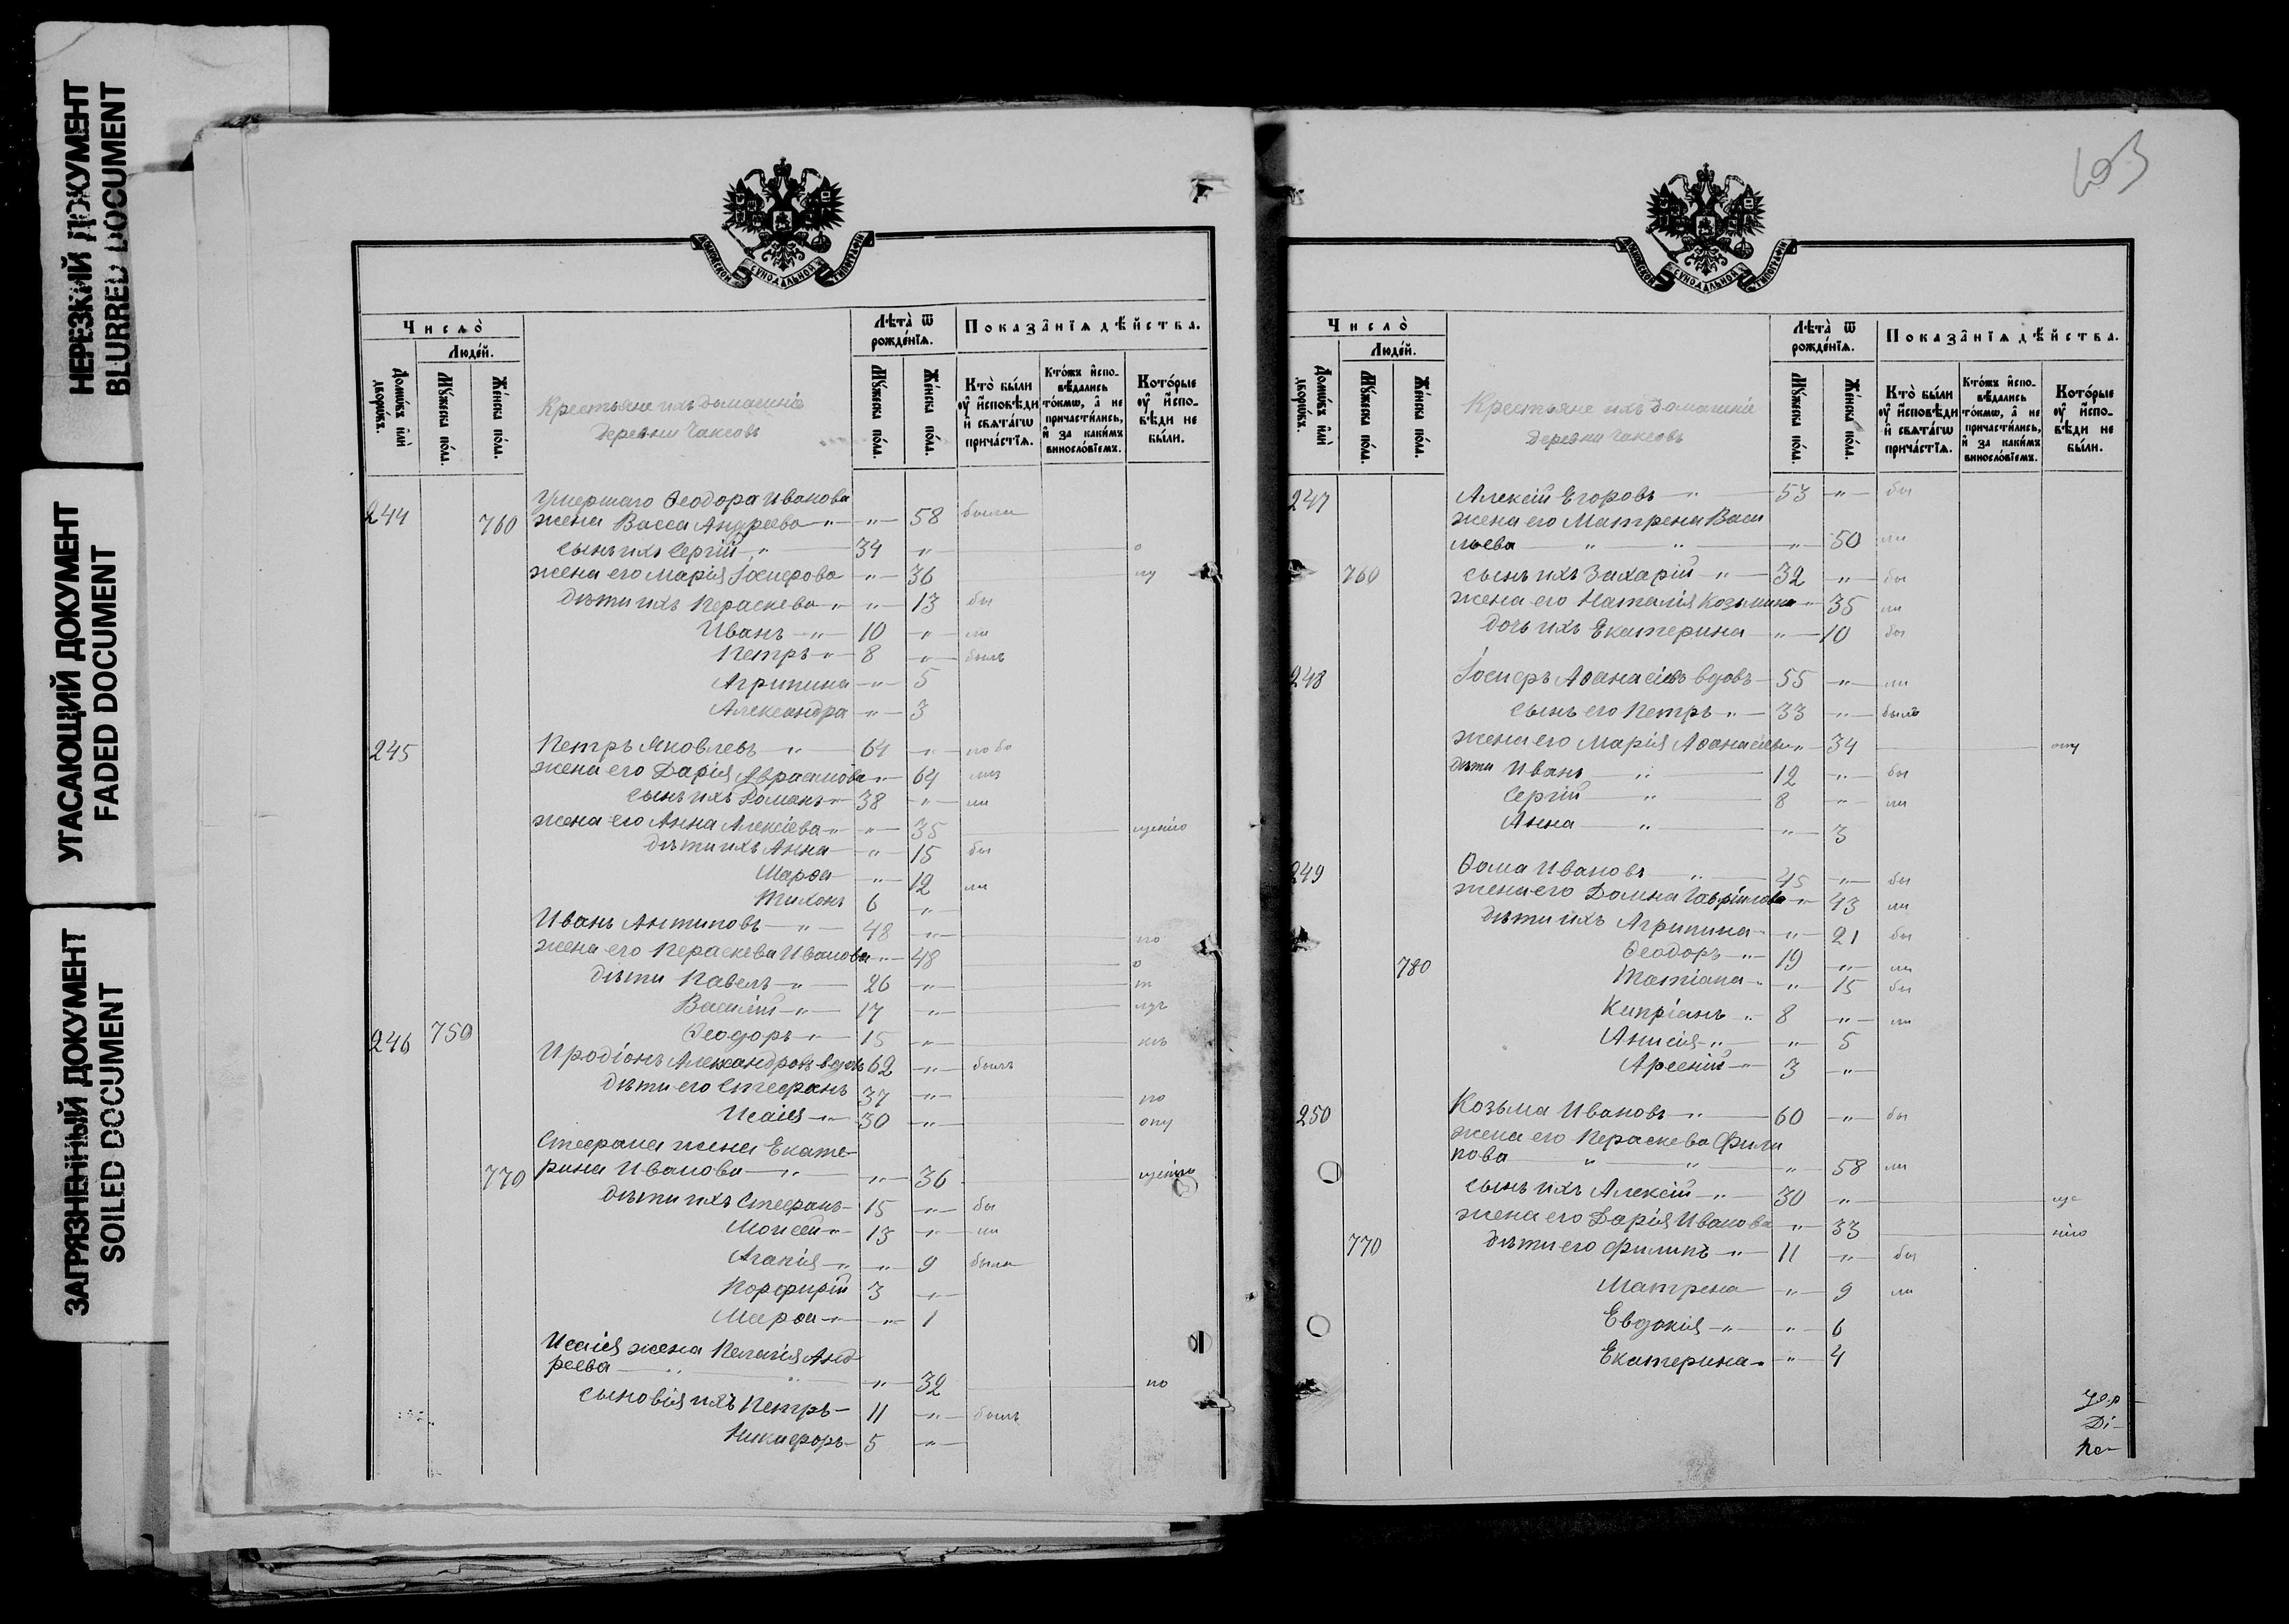 НЕРЕЗКИЙ ДОКУМЕНТ
BLURRED DOCUMENT
УГАСАЮЩИЙ ДОКУМЕНТ
FADED DOCUMENT
ЗАГРЯЗНЕННЫЙ ДОКУМЕНТ
SOILED DOCUMENT
МОСКОВСКОЙ СУНОДАЛЬНОЙ ТИПОГРАФІИ
Число̀
Люде́й.
Домѡ́въ и҆лѝ дворѡ́въ.
Мꙋ́жеска пола.
Же́нска пола.
Крестьяне ихъ домашніе
деревни Чаксовъ
Лѣта̀ ѿ рожде́нїѧ.
Мꙋ́жеска пола.
Же́нска пола.
Показа̑нїѧ дѣ́йства.
Кто̀ бы́ли ᲂу҆ и҆сповѣ́ди и҆ свѧта́гѡ прича́стїѧ.
Кто́жъ и҆спо-вѣ́дались то́кмѡ, а҆ не причасти́лись, и҆ за каки́мъ виносло́вїемъ.
Кото́рые ᲂу҆ и҆спо-вѣ́ди не бы́ли.
Умершаго Ѳеодора Иванова
244 760 жена Васса Андреева " " 58 были
сынъ ихъ Сергій " 34 " о
жена его Марія Іосифова " 36 пу
дѣти ихъ Параскева " " 13 бы
Иванъ " 10 " ли
Петръ " 8 " былъ
Агрипина " 5
Александра " 3
245 Петръ Яковлевъ " 64 "
жена его Дарія Авраамова " 64
сынъ ихъ Романъ " 38 " ли
жена его Анна Алексіева " " 35 щенію
дѣти ихъ Анна " 15 бы
Марѳа " 12 ли
Тихонъ 6 "
Иванъ Антиповъ " 48 " по
жена его Параскева Иванова " 48 о
дѣти Павелъ " 26 " т
Василій " 17 "
246 750 Ѳеодоръ " 15 "
Иродіонъ Александровъ вдовъ 62 " былъ
дѣти его Стефанъ 37 " по
Исаія " 30 " опу
Стефана жена Екате-
770 рина Иванова " " 36 щенію
дѣти ихъ Стефанъ 15 " бы
Моисей " 13 " ли
Агапія " " 9 была
Порфирій 3 "
Марѳа " " 1
Исаія жена Пелагія Анд
реева " " " 32 по
сыновія ихъ Петръ 11 " былъ
Никифоръ 5 "
МОСКОВСКОЙ СУНОДАЛЬНОЙ ТИПОГРАФІИ
Число̀
Люде́й.
Домѡ́въ и҆лѝ дворѡ́въ.
Мꙋ́жеска пола.
Же́нска пола.
Крестьяне ихъ домашніе
деревни Чаксовъ
Лѣта̀ ѿ рожде́нїѧ.
Мꙋ́жеска пола.
Же́нска пола.
Показа̑нїѧ дѣ́йства.
Кто̀ бы́ли ᲂу҆ и҆сповѣ́ди и҆ свѧта́гѡ прича́стїѧ.
Кто́жъ и҆спо-вѣ́дались то́кмѡ, а҆ не причасти́лись, и҆ за каки́мъ виносло́вїемъ.
Кото́рые ᲂу҆ и҆спо-вѣ́ди не бы́ли.
247 Алексій Егоровъ " 53 " бы
жена его Матрена Васи
льева " " " 50 ли
760 сынъ ихъ Захарій " 32 " бы
жена его Наталія Козьмина " 35 ли
дочь ихъ Екатерина " 10 бы
248 Іосифъ Аѳанасіевъ вдовъ 55 " ли
сынъ его Петръ " 33 " былъ
жена его Марія Аѳанасіева " 34 опу
дѣти Иванъ " 12 " бы
Сергій " 8 " ли
Анна " " 3
249 Ѳома Ивановъ " 45 " бы
жена его Домна Гавріилова " 43 ли
дѣти ихъ Агрипина " 21 бы
Ѳеодоръ " 19 " ли
780 Татіана " " 15 бы
Кипріанъ " 8 " ли
Анисія " " 5
Арсеній " 3 "
250 Козьма Ивановъ " 60 " бы
жена его Параскева Фили
пова " " " 58 ли
сынъ ихъ Алексій " 30 " ще
жена его Дарія Иванова " 33 нію
770 дѣти его Филипъ " 11 " бы
Матрена " 9 ли
Евдокія " " 6
Екатерина " " 4
Ді-